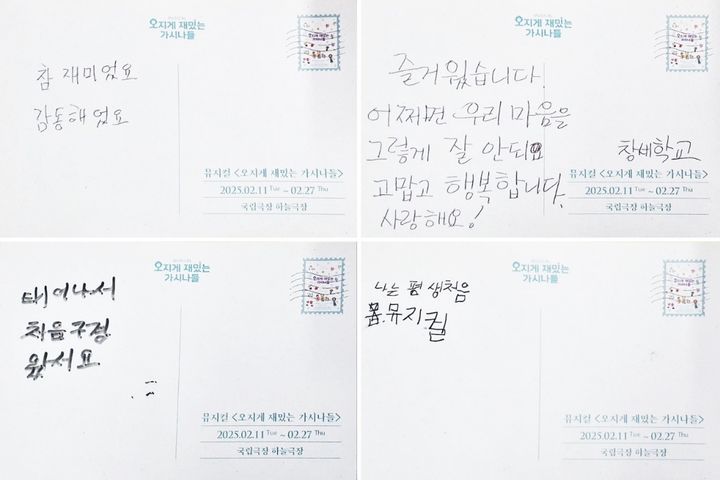 오지게 재밌는
가시나들
참 재미있었요
감동해었요
뮤지컬 <오지게 재밌는 가시나들>
2025.02.11 Tue ~ 02.27 Thu
국립극장 하늘극장
오지게 재밌는
가시나들
즐거웠습니다.
어쩌면 우리 마음을
그렇게 잘 안되요
고맙고 행복합니다.
사랑해요!
창세학교
뮤지컬 <오지게 재밌는 가시나들>
2025.02.11 Tue ~ 02.27 Thu
국립극장 하늘극장
오지게 재밌는
가시나들
태어나서
처음구경
왔서요
뮤지컬 <오지게 재밌는 가시나들>
2025.02.11 Tue ~ 02.27 Thu
국립극장 하늘극장
오지게 재밌는
가시나들
나는 평생처음
봄.뮤지컬
뮤지컬 <오지게 재밌는 가시나들>
2025.02.11 Tue ~ 02.27 Thu
국립극장 하늘극장